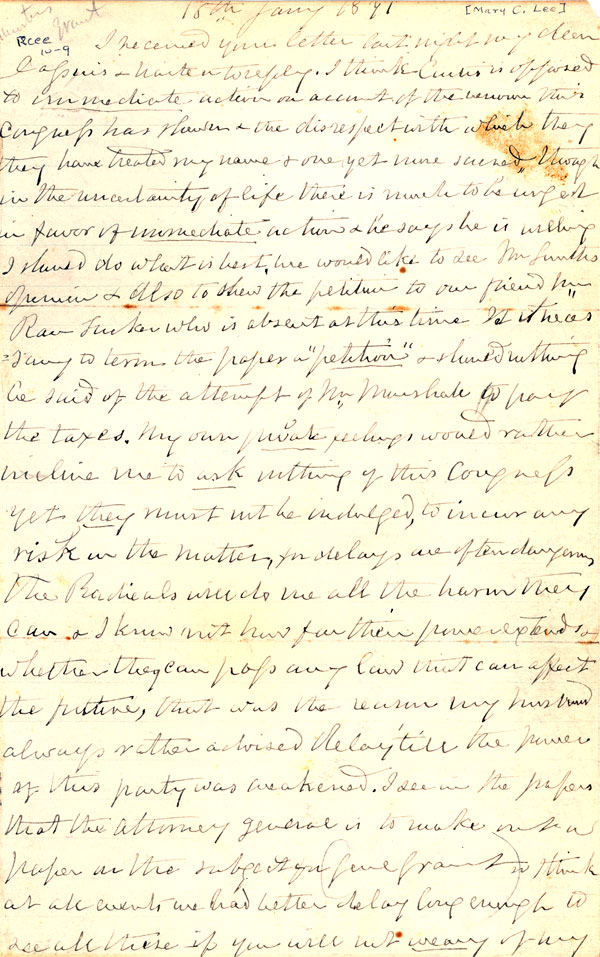 18th Jany 1871
[Mary C. Lee]
Grant
Rcee
10-9
I received your letter last night my dear
Cassius & hasten to reply. I think Custis is opposed
to immediate action on account of the venom this
Congress has shown & the disrespect with which they
they have treated my name & one yet more sacred, though
in the uncertainty of life there is much to be urged
in favor of immediate action & he says he is willing
I should do what is best, we would like to see Mr Smith's
opinion & also to shew the petition to our friend Mr
Ran Tucker who is absent at this time Is it neces
=sary to term the paper a "petition" & should nothing
be said of the attempt of Mr Marshall to pay
the taxes. My own private feelings would rather
incline me to ask nothing of this Congress
yet they must not be indulged, to incur any
risk in the matter, for delays are often dangerous
the Radicals will do me all the harm they
can & I know not how far their power extends &
whether they can pass any law that can affect
the future, that was the reason my husband
always rather advised delay till the power
of this party was weakened. I see in the papers
that the attorney general is to make out a
paper on the subject for Genl Grant so think
at all events we had better delay long enough to
see all these if you will not weary of my